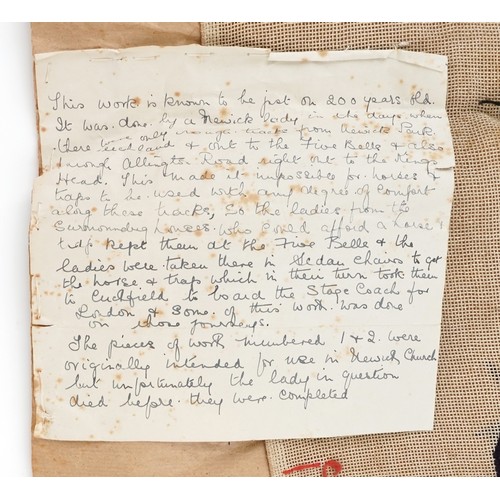 This work is known to be just on 200 years old.
It was done by a Newick lady in the days when
there were only rough tracks from Newick Park
& out to the Five Bells & also
through Allington Road right out to the Kings
Head. This made it impossible for horses &
traps to be used with any degree of comfort
along these tracks, So the ladies from the
Surrounding houses who could afford a horse &
trap kept them at the Five Bells & the
ladies were taken there in Sedan Chairs to get
the horse & traps which in their turn took them
to Cuckfield to board the Stage Coach for
London & Some of this work was done
on those journeys.
The pieces of work numbered 1 & 2 were
originally intended for use in Newick Church
but unfortunately the lady in question
died before they were completed